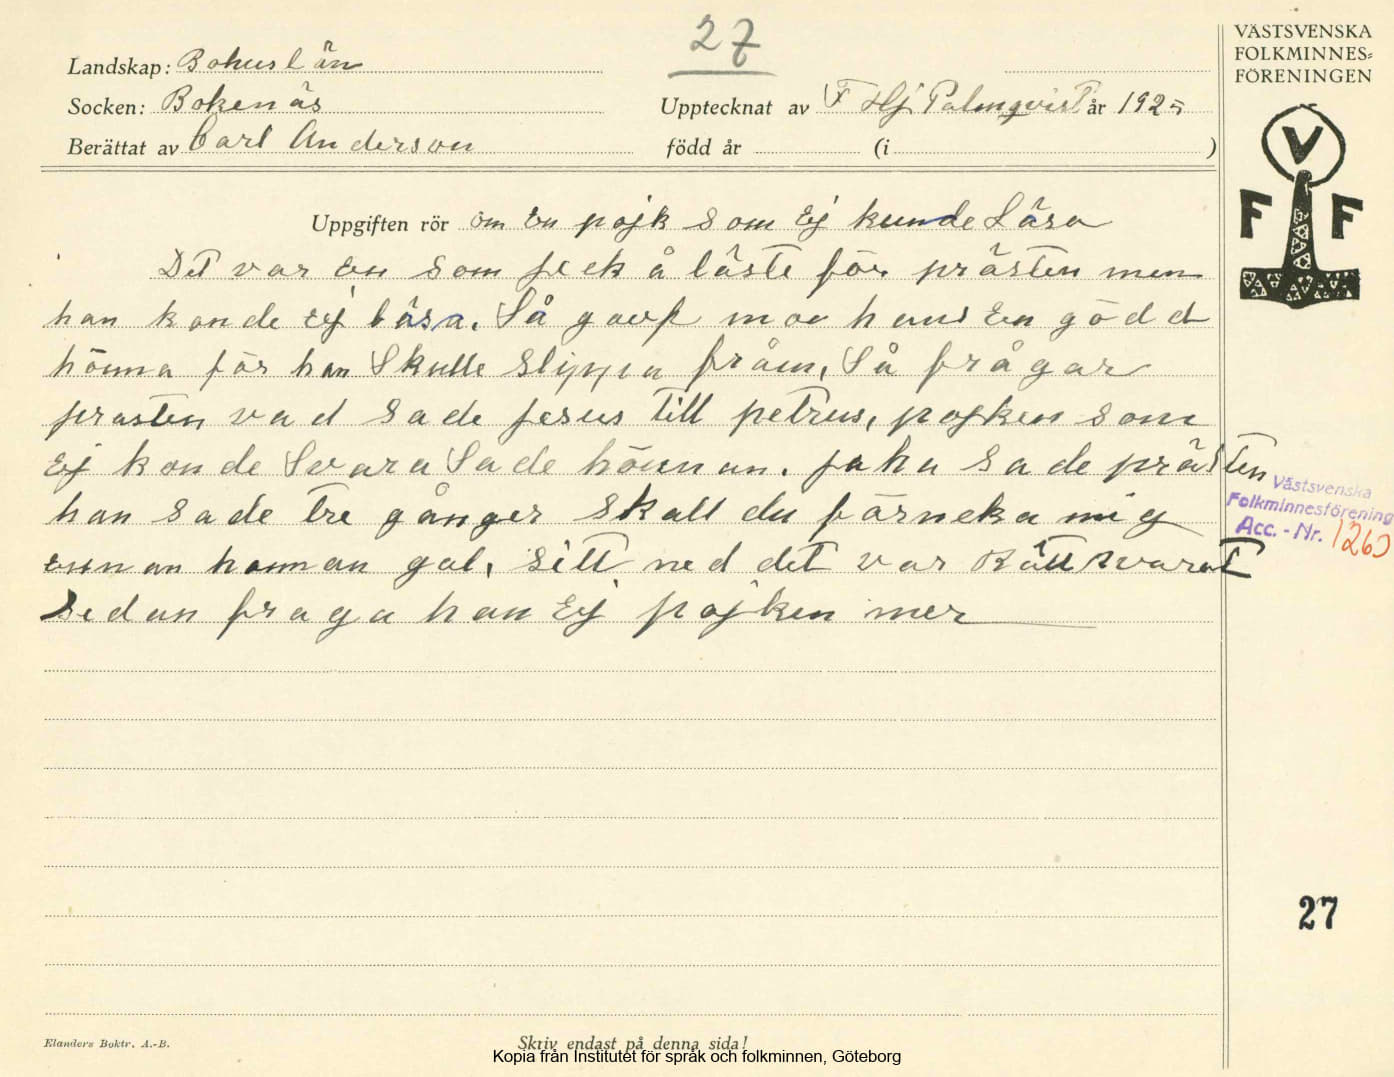 27
VÄSTSVENSKA
FOLKMINNES=
FÖRENINGEN
Landskap: Bohuslän
Socken: Bokenäs
Upptecknat av F Hj Palmqvist år 1925
Berättat av Carl Anderson
född år (i )
V
F F
Uppgiften rör om en pojk som Ej kunde Läsa
Det var en som fick å läste för prästen men
han konde ej läsa. Så gaf mor hans En gödd
hönna för han Skulle Slippa fråm, Så frågar
prasten vad sade Jesus till petrus, pojken som
Ej konde Svara Sade hönnan. jaha sade prästen
han sade tre gånger skall du förneka mig
innan hannan gol, sitt ned det var Rätt svarat
Sedan fraga han Ej pojken mer
Västsvenska
Folkminnesförening
Acc. - Nr. 1260
27
Elanders Boktr. A.-B.
Skriv endast på denna sida!
Kopia från Institutet för språk och folkminnen, Göteborg